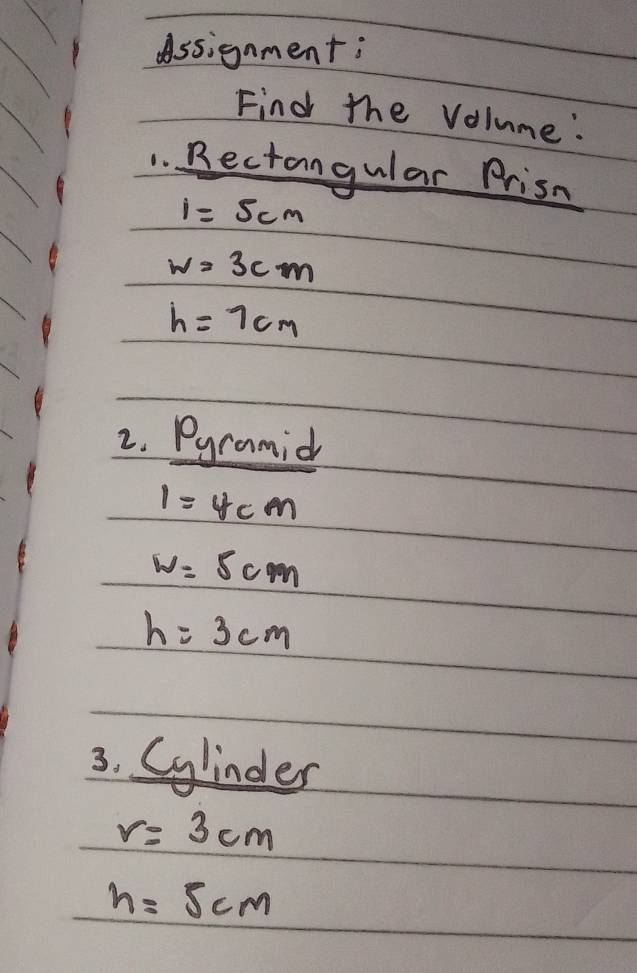 Assignment:
Find the Volume:
1. Rectangular Prism
l = 5cm
w = 3cm
h = 7cm
2. Pyramid
l = 4cm
w = 5cm
h = 3cm
3. Cylinder
r = 3cm
h = 5cm